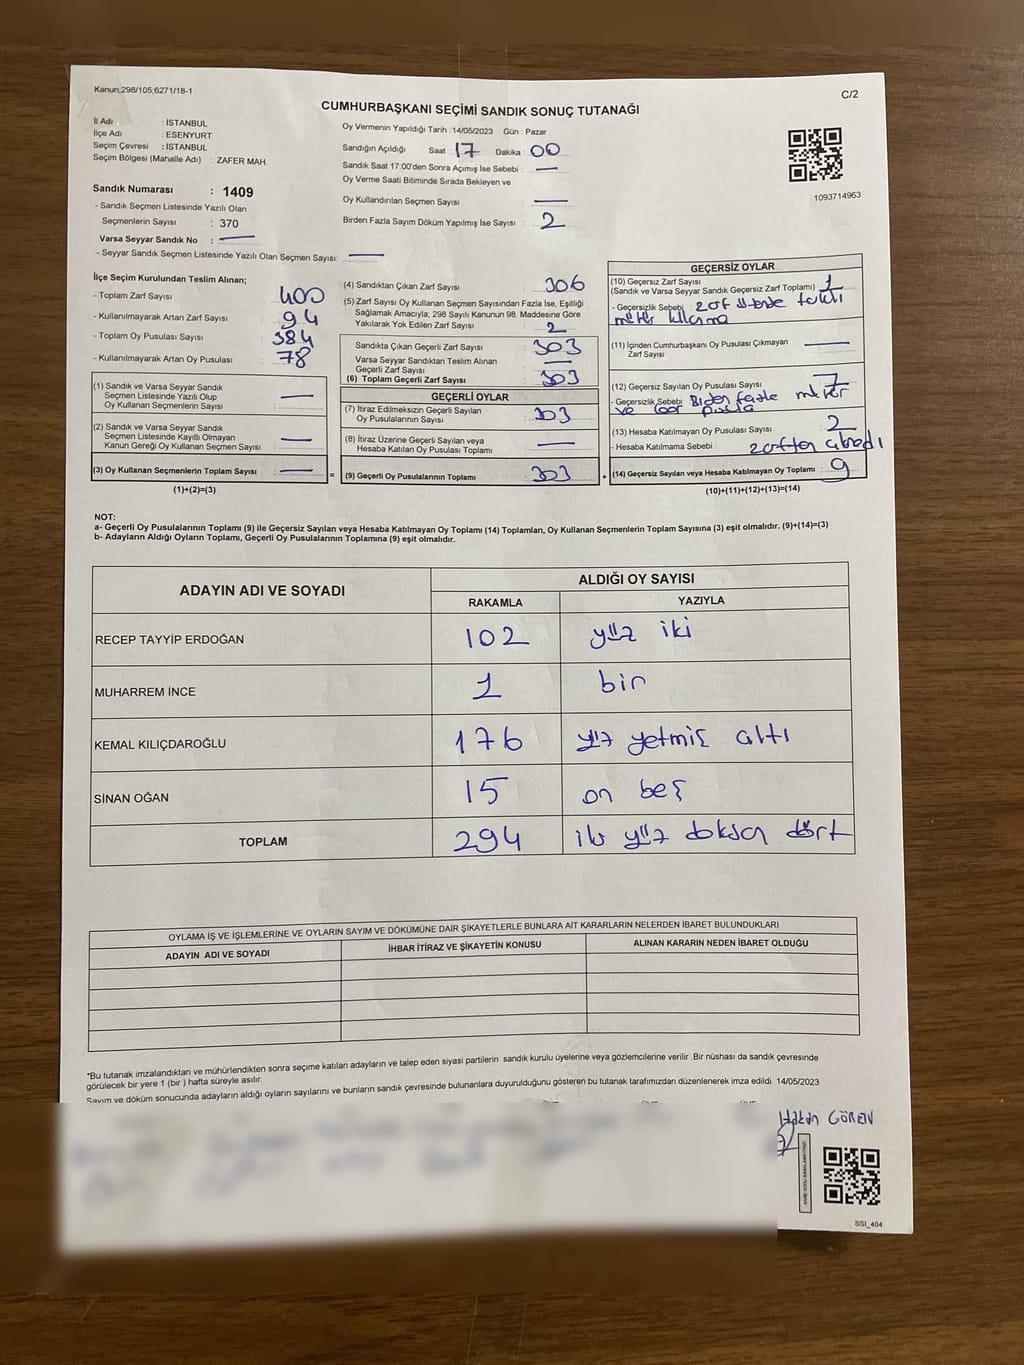 Kanun,298/105;6271/18-1
C/2
CUMHURBAŞKANI SEÇİMİ SANDIK SONUÇ TUTANAĞI
İl Adı : İSTANBUL
İlçe Adı : ESENYURT
Seçim Çevresi : İSTANBUL
Seçim Bölgesi (Mahalle Adı) : ZAFER MAH.
Sandık Numarası : 1409
- Sandık Seçmen Listesinde Yazılı Olan
Seçmenlerin Sayısı : 370
Varsa Seyyar Sandık No : —
- Seyyar Sandık Seçmen Listesinde Yazılı Olan Seçmen Sayısı: —
Oy Vermenin Yapıldığı Tarih : 14/05/2023 Gün : Pazar
Sandığın Açıldığı Saat : 17 Dakika : 00
Sandık Saat 17:00'den Sonra Açımış İse Sebebi : —
Oy Verme Saati Bitiminde Sırada Bekleyen ve
Oy Kullandırılan Seçmen Sayısı : —
Birden Fazla Sayım Döküm Yapılmış İse Sayısı : 2
1093714963
İlçe Seçim Kurulundan Teslim Alınan;
- Toplam Zarf Sayısı : 400
- Kullanılmayarak Artan Zarf Sayısı : 94
- Toplam Oy Pusulası Sayısı : 384
- Kullanılmayarak Artan Oy Pusulası : 78
(1) Sandık ve Varsa Seyyar Sandık
Seçmen Listesinde Yazılı Olup
Oy Kullanan Seçmenlerin Sayısı : —
(2) Sandık ve Varsa Seyyar Sandık
Seçmen Listesinde Kayıtlı Olmayan
Kanun Gereği Oy Kullanan Seçmen Sayısı : —
(3) Oy Kullanan Seçmenlerin Toplam Sayısı : — =
(1)+(2)=(3)
(4) Sandıktan Çıkan Zarf Sayısı : 306
(5) Zarf Sayısı Oy Kullanan Seçmen Sayısından Fazla İse, Eşitliği
Sağlamak Amacıyla, 298 Sayılı Kanunun 98. Maddesine Göre
Yakılarak Yok Edilen Zarf Sayısı : 2
Sandıkta Çıkan Geçerli Zarf Sayısı : 303
Varsa Seyyar Sandıktan Teslim Alınan
Geçerli Zarf Sayısı : —
(6) Toplam Geçerli Zarf Sayısı : 303
GEÇERLİ OYLAR
(7) İtiraz Edilmeksizin Geçerli Sayılan
Oy Pusulalarının Sayısı : 303
(8) İtiraz Üzerine Geçerli Sayılan veya
Hesaba Katılan Oy Pusulası Toplamı : —
(9) Geçerli Oy Pusulalarının Toplamı : 303 +
GEÇERSİZ OYLAR
(10) Geçersiz Zarf Sayısı
(Sandık ve Varsa Seyyar Sandık Geçersiz Zarf Toplamı) : 1
- Geçersizlik Sebebi :
(11) İçinden Cumhurbaşkanı Oy Pusulası Çıkmayan
Zarf Sayısı : —
(12) Geçersiz Sayılan Oy Pusulası Sayısı : 7
- Geçersizlik Sebebi : Birden fazla mühür
ve
(13) Hesaba Katılmayan Oy Pusulası Sayısı : 2
- Hesaba Katılmama Sebebi :
(14) Geçersiz Sayılan veya Hesaba Katılmayan Oy Toplamı : 9
(10)+(11)+(12)+(13)=(14)
NOT:
a- Geçerli Oy Pusulalarının Toplamı (9) ile Geçersiz Sayılan veya Hesaba Katılmayan Oy Toplamı (14) Toplamları, Oy Kullanan Seçmenlerin Toplam Sayısına (3) eşit olmalıdır. (9)+(14)=(3)
b- Adayların Aldığı Oyların Toplamı, Geçerli Oy Pusulalarının Toplamına (9) eşit olmalıdır.
ADAYIN ADI VE SOYADI ALDIĞI OY SAYISI
RAKAMLA YAZIYLA
RECEP TAYYİP ERDOĞAN 102 yüz iki
MUHARREM İNCE 1 bir
KEMAL KILIÇDAROĞLU 176 yüz yetmiş altı
SİNAN OĞAN 15 on beş
TOPLAM 294 iki yüz doksan dört
OYLAMA İŞ VE İŞLEMLERİNE VE OYLARIN SAYIM VE DÖKÜMÜNE DAİR ŞİKAYETLERLE BUNLARA AİT KARARLARIN NELERDEN İBARET BULUNDUKLARI
ADAYIN ADI VE SOYADI İHBAR İTİRAZ VE ŞİKAYETİN KONUSU ALINAN KARARIN NEDEN İBARET OLDUĞU
*Bu tutanak imzalandıktan ve mühürlendikten sonra seçime katılan adayların ve talep eden siyasi partilerin sandık kurulu üyelerine veya gözlemcilerine verilir .Bir nüshası da sandık çevresinde
görülecek bir yere 1 (bir ) hafta süreyle asılır.
Sayım ve döküm sonucunda adayların aldığı oyların sayılarını ve bunların sandık çevresinde bulunanlara duyurulduğunu gösteren bu tutanak tarafımızdan düzenlenerek imza edildi. 14/05/2023
Hakan GÖREN
SSI_404